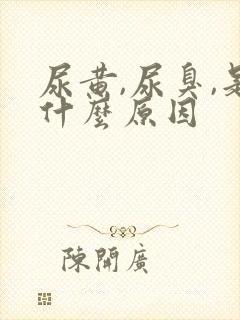 尿黄,尿臭,是
什麼原因
陳開廣